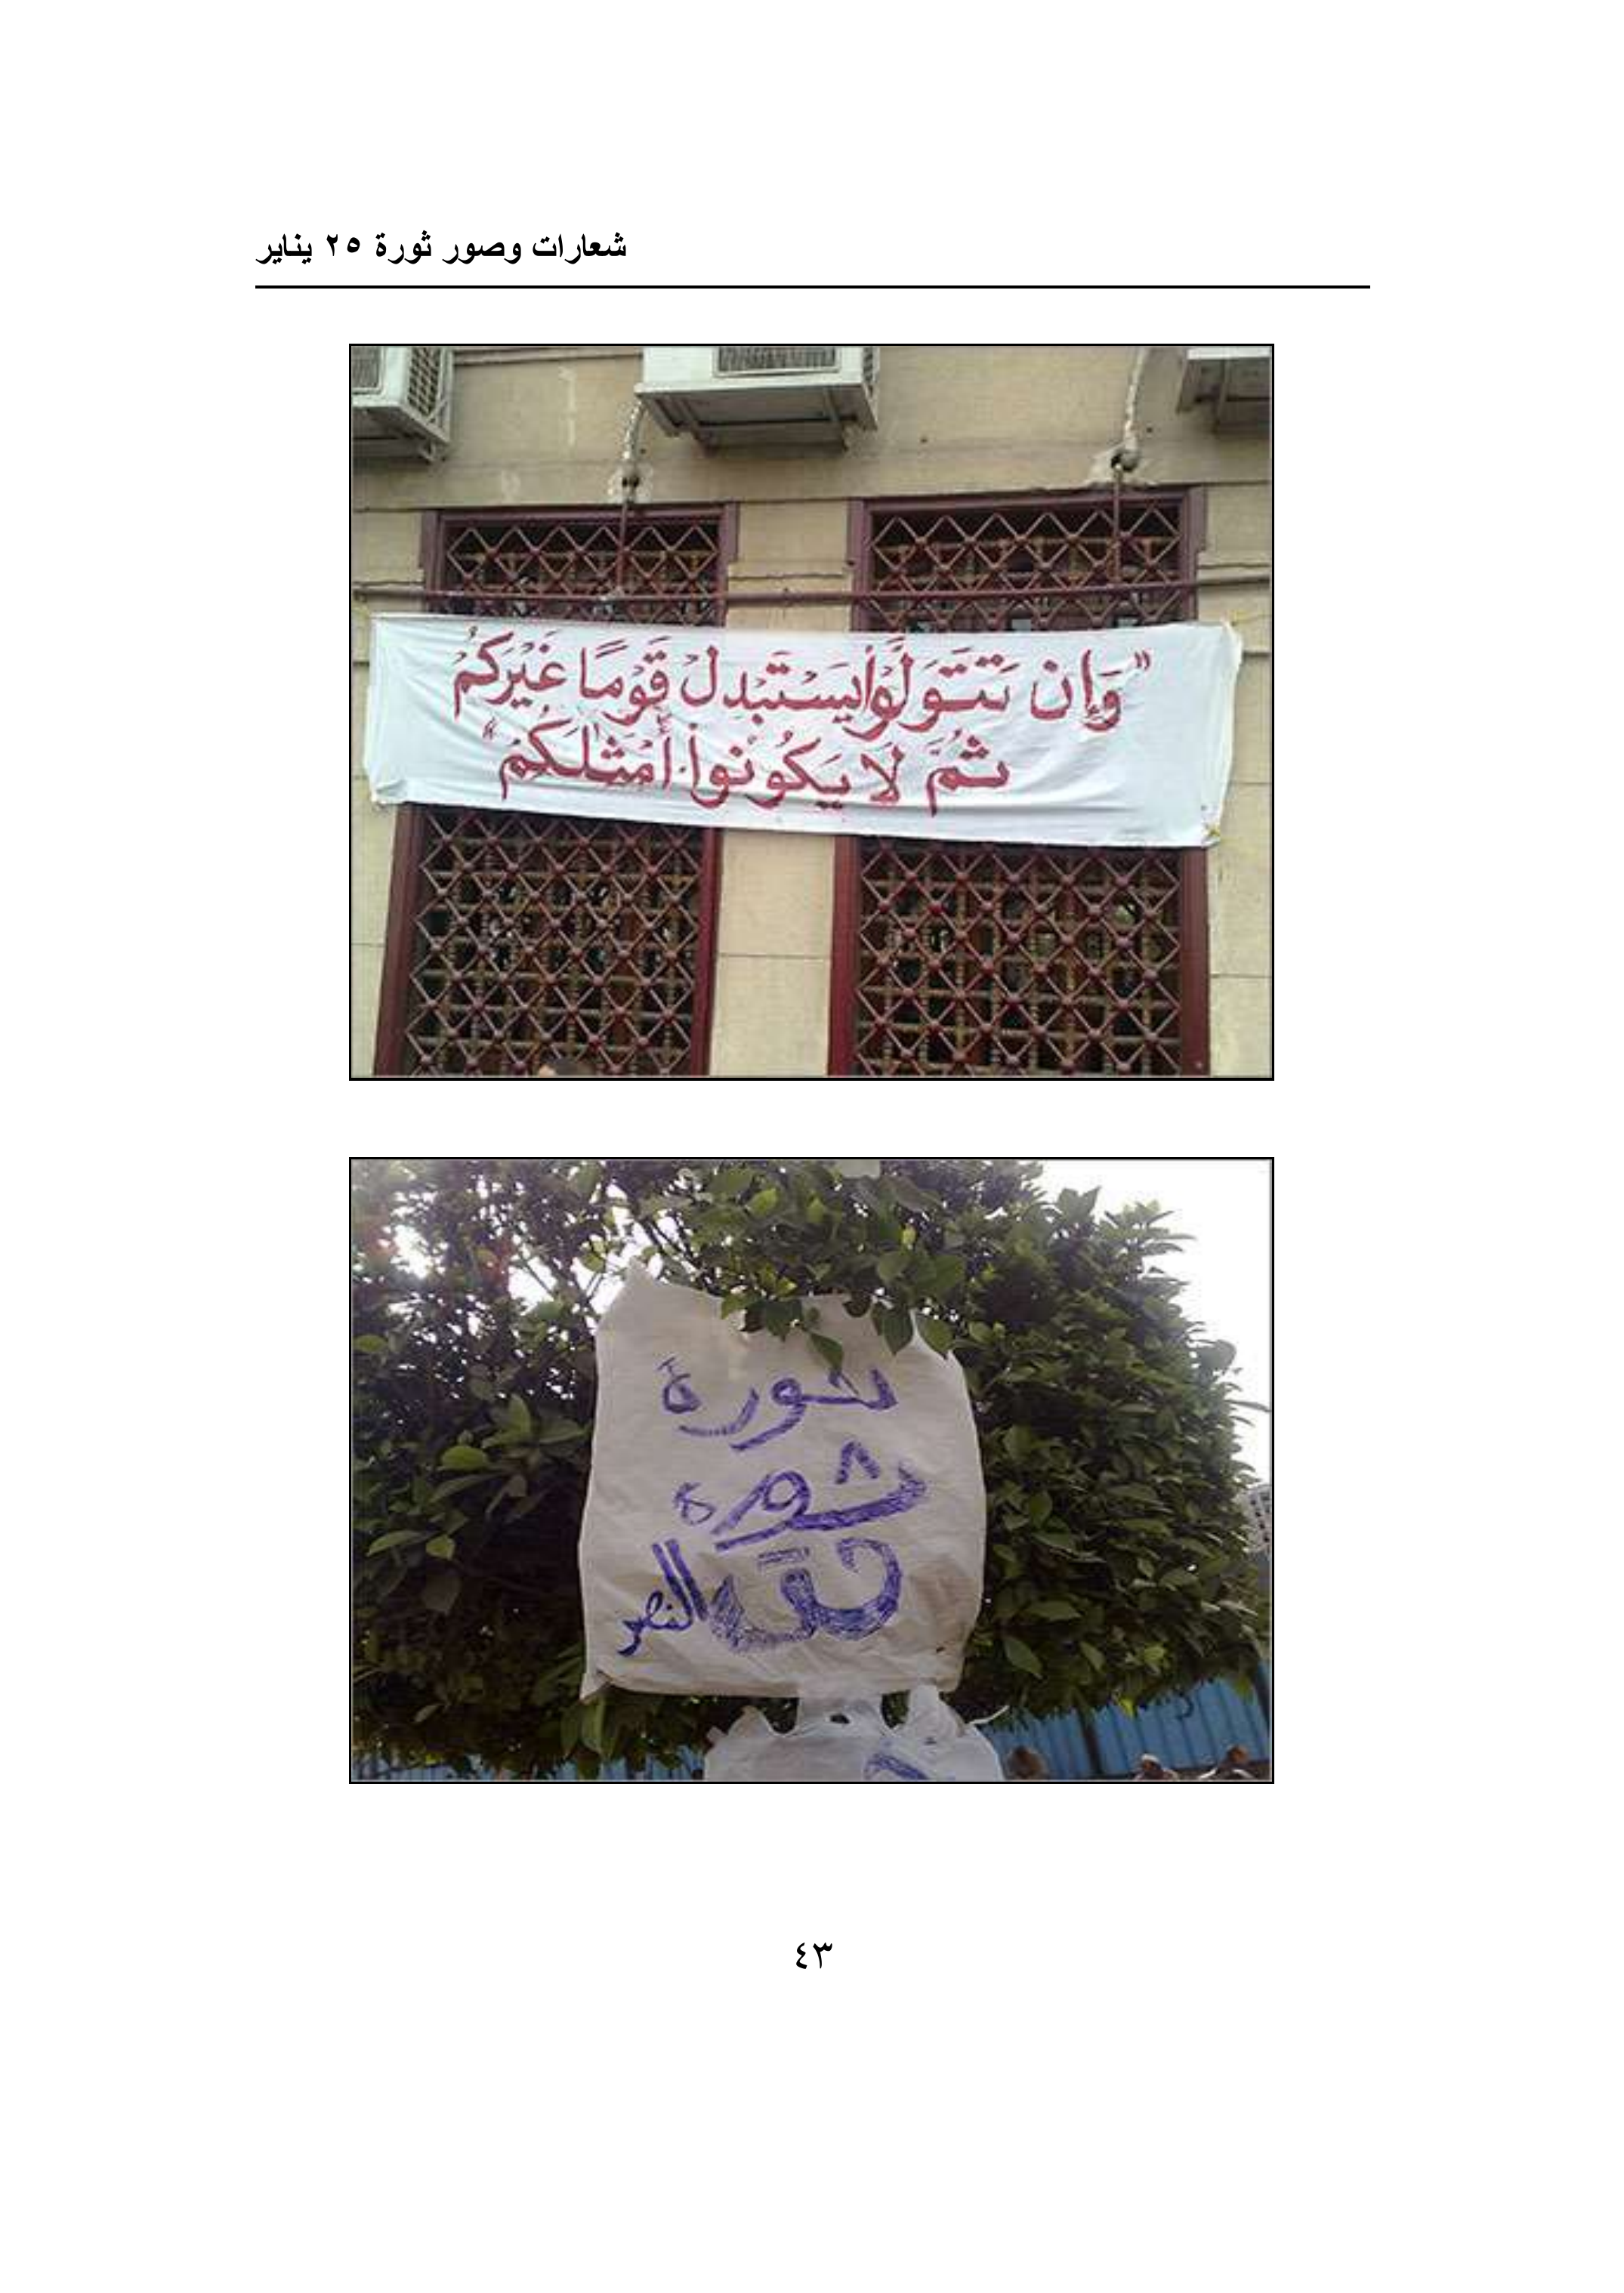 شعارات وصور ثورة ٢٥ يناير
"وَإِن تَتَوَلَّوْا۟ يَسْتَبْدِلْ قَوْمًا غَيْرَكُمْ
ثُمَّ لَا يَكُونُوٓا۟ أَمْثَٰلَكُمْ"
ثورة
ثورة
حتى
النصر
٤٣